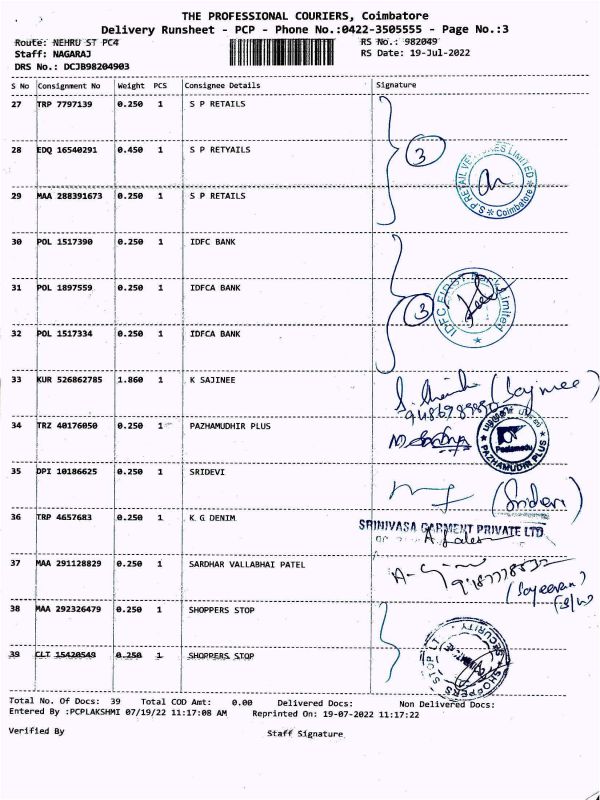 THE PROFESSIONAL COURIERS, Coimbatore
Delivery Runsheet - PCP - Phone No.:0422-3505555 - Page No.:3
Route: NEHRU ST PC4 RS No.: 982049
Staff: NAGARAJ RS Date: 19-Jul-2022
DRS No.: DCJB98204903
S No Consignment No Weight PCS Consignee Details Signature
27 TRP 7797139 0.250 1 S P RETAILS
28 EDQ 16540291 0.450 1 S P RETYAILS
3
S.P RETAIL VENTURES LIMITED * Coimbatore *
29 MAA 288391673 0.250 1 S P RETAILS
30 POL 1517390 0.250 1 IDFC BANK
31 POL 1897559 0.250 1 IDFCA BANK
3
IDFC FIRST Limited
32 POL 1517334 0.250 1 IDFCA BANK
33 KUR 526862785 1.860 1 K SAJINEE
34 TRZ 40176050 0.250 1 PAZHAMUDHIR PLUS
Peelamedu
* PAZHAMUDIR PLUS *
35 DPI 10186625 0.250 1 SRIDEVI
(Sridevi)
36 TRP 4657683 0.250 1 K G DENIM
SRINIVASA GARMENT PRIVATE LTD
37 MAA 291128829 0.250 1 SARDHAR VALLABHAI PATEL
38 MAA 292326479 0.250 1 SHOPPERS STOP
39 CLT 15420549 0.250 1 SHOPPERS STOP
SHOPPERS STOP LT SECURITY
Total No. Of Docs: 39 Total COD Amt: 0.00 Delivered Docs: Non Delivered Docs:
Entered By :PCPLAKSHMI 07/19/22 11:17:08 AM Reprinted On: 19-07-2022 11:17:22
Verified By Staff Signature